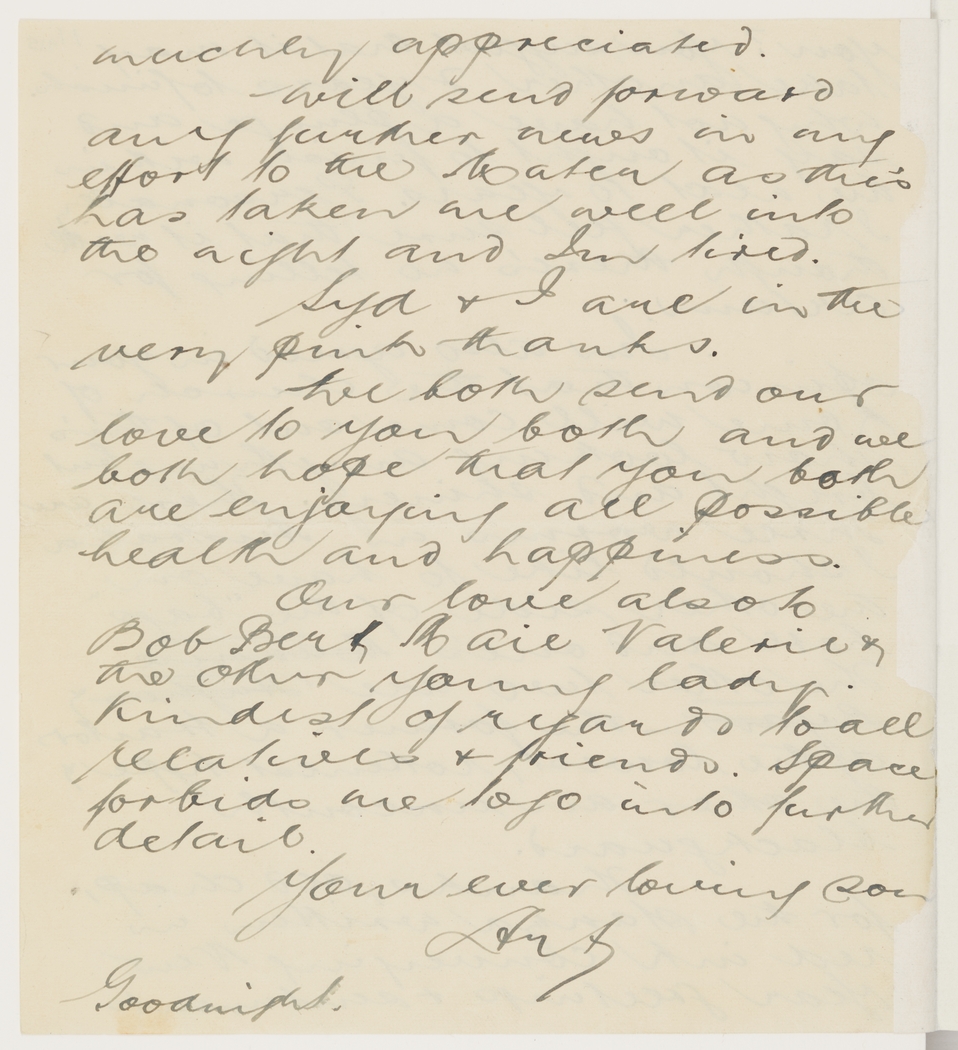 muchly appreciated.
Will send forward
any further news in my
effort to the Mater as this
has taken me well into
the night and Im tired.
Syd & I are in the
very pink thanks.
We both send our
love to you both and we
both hope that you both
are enjoying all possible
health and happiness.
Our love also to
Bob Bert, Maie Valerie &
the other young lady.
Kindest of regards to all
relatives & friends. Space
forbids me to go into further
detail.
Your ever loving son
Art
Goodnight.